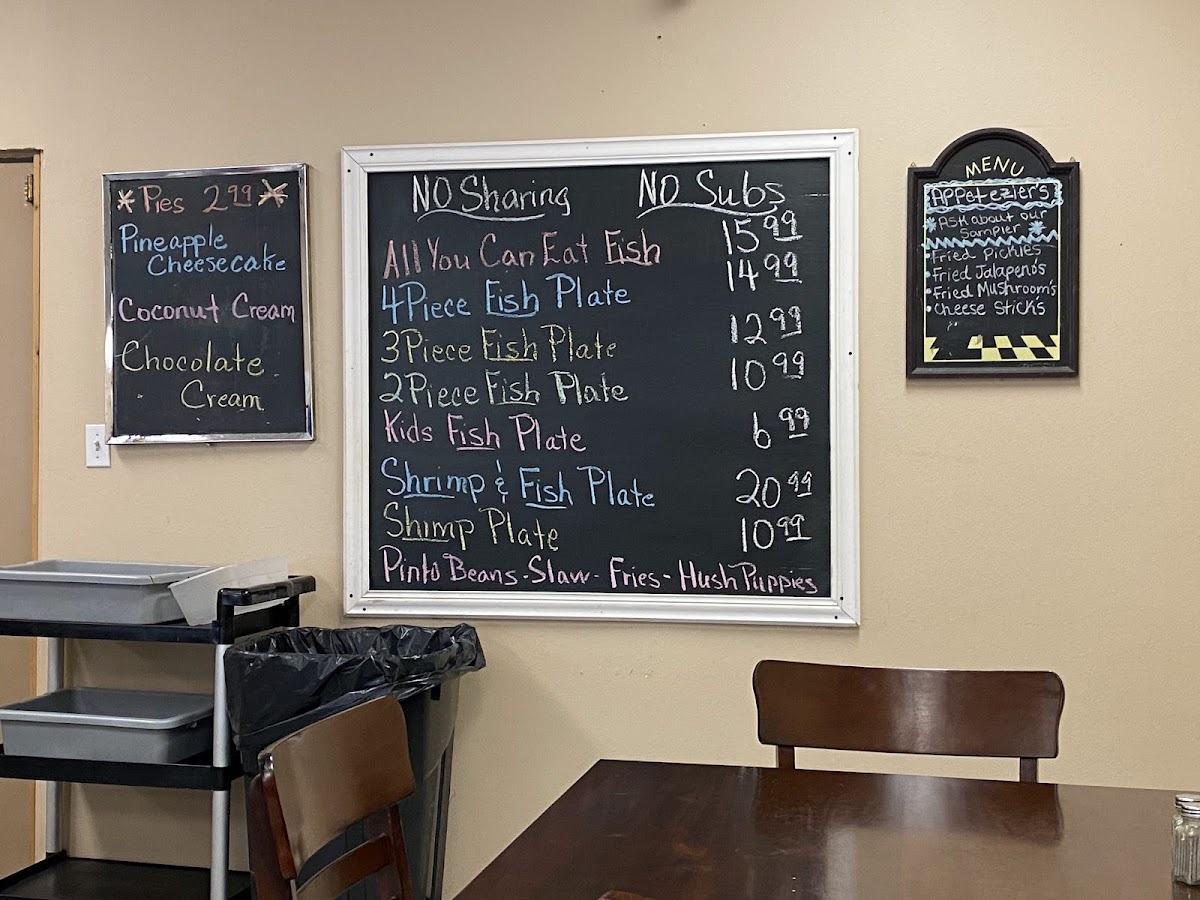 * Pies 2.99 *
Pineapple
Cheesecake
Coconut Cream
Chocolate
Cream
NO Sharing NO Subs
All You Can Eat Fish 15.99
4 Piece Fish Plate 14.99
3 Piece Fish Plate 12.99
2 Piece Fish Plate 10.99
Kids Fish Plate 6.99
Shrimp & Fish Plate 20.99
Shimp Plate 10.99
Pinto Beans - Slaw - Fries - Hush Puppies
MENU
Appetezier's
* Ask about our
Sampler *
• Fried Pickles
• Fried Jalapeno's
• Fried Mushroom's
• Cheese Stick's